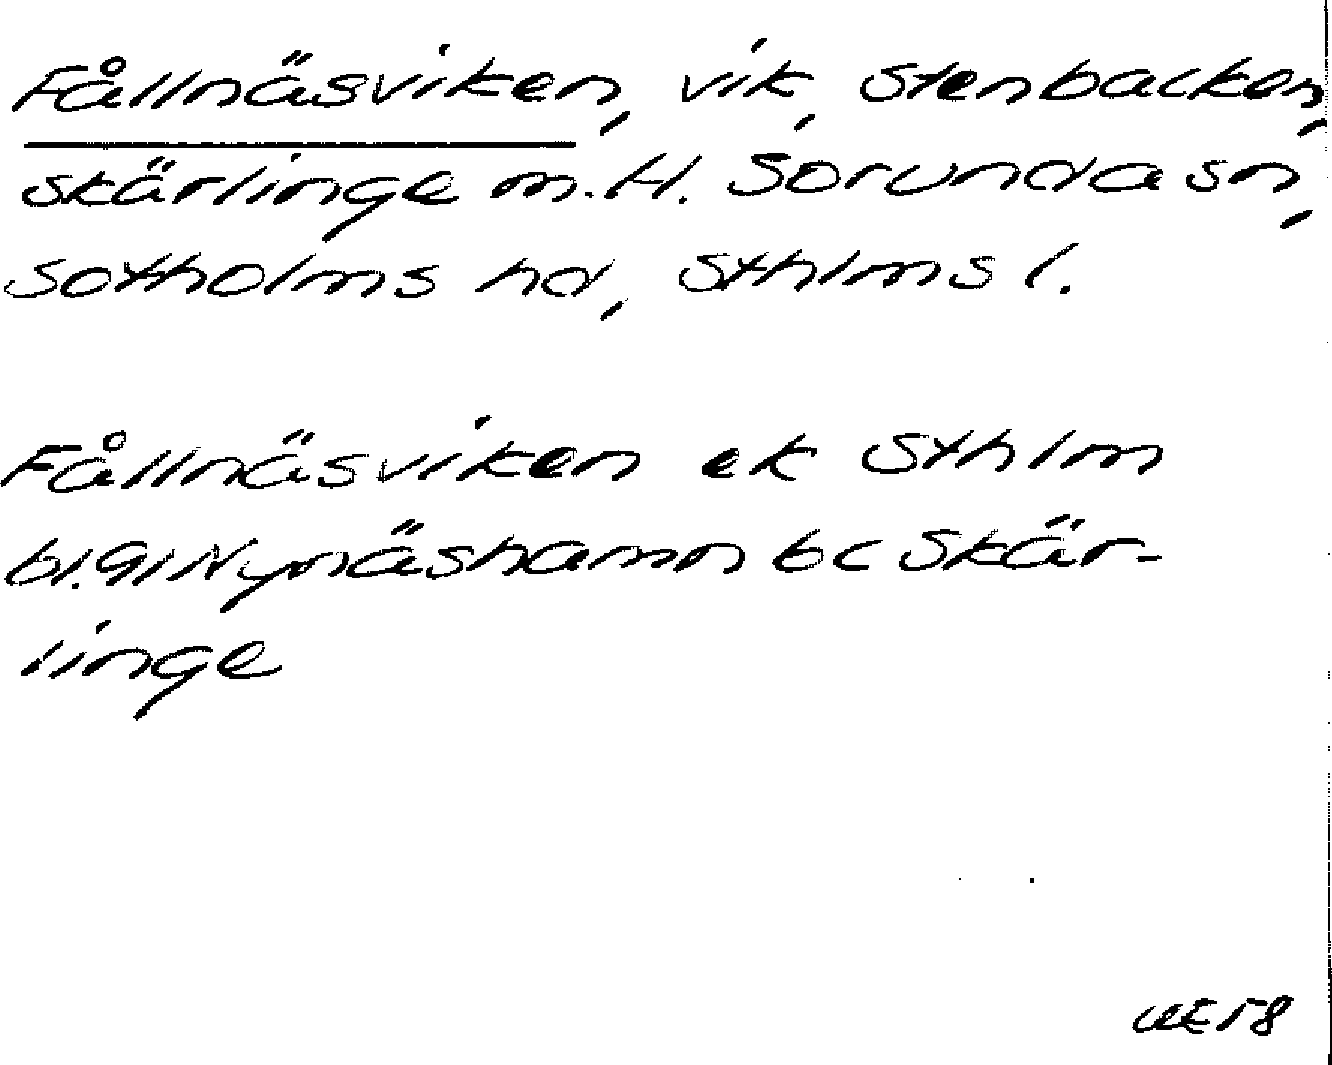 Fållnäsviken, vik, Stenbacken,
Skärlinge m.fl. Sorunda sn,
Sotholms hd, Sthlms l.
Fållnäsviken ek Sthlm
bl.91 Nynäshamn bc Skär-
linge